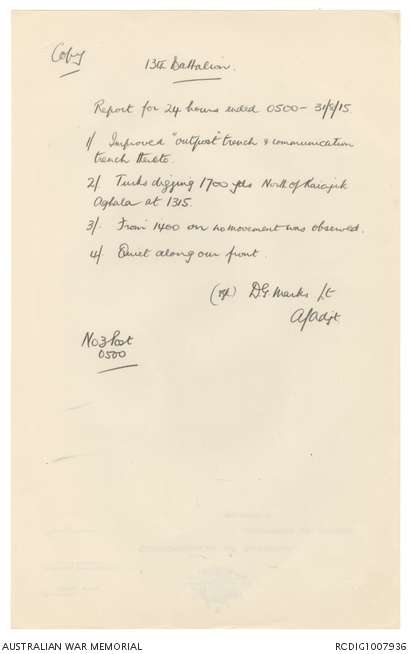 Copy
13th Battalion.
Report for 24 hours ended 0500 - 31/8/15.
1/. Improved "outpost" trench & communication
trench thereto.
2/. Turks digging 1700 yds North of Kaiajik
Aghala at 1315.
3/. From 1400 on no movement was observed.
4/. Quiet along our front.
D.G. Marks Lt
A/Adjt
No 3 Post
0500
AUSTRALIAN WAR MEMORIAL
RCDIG1007936